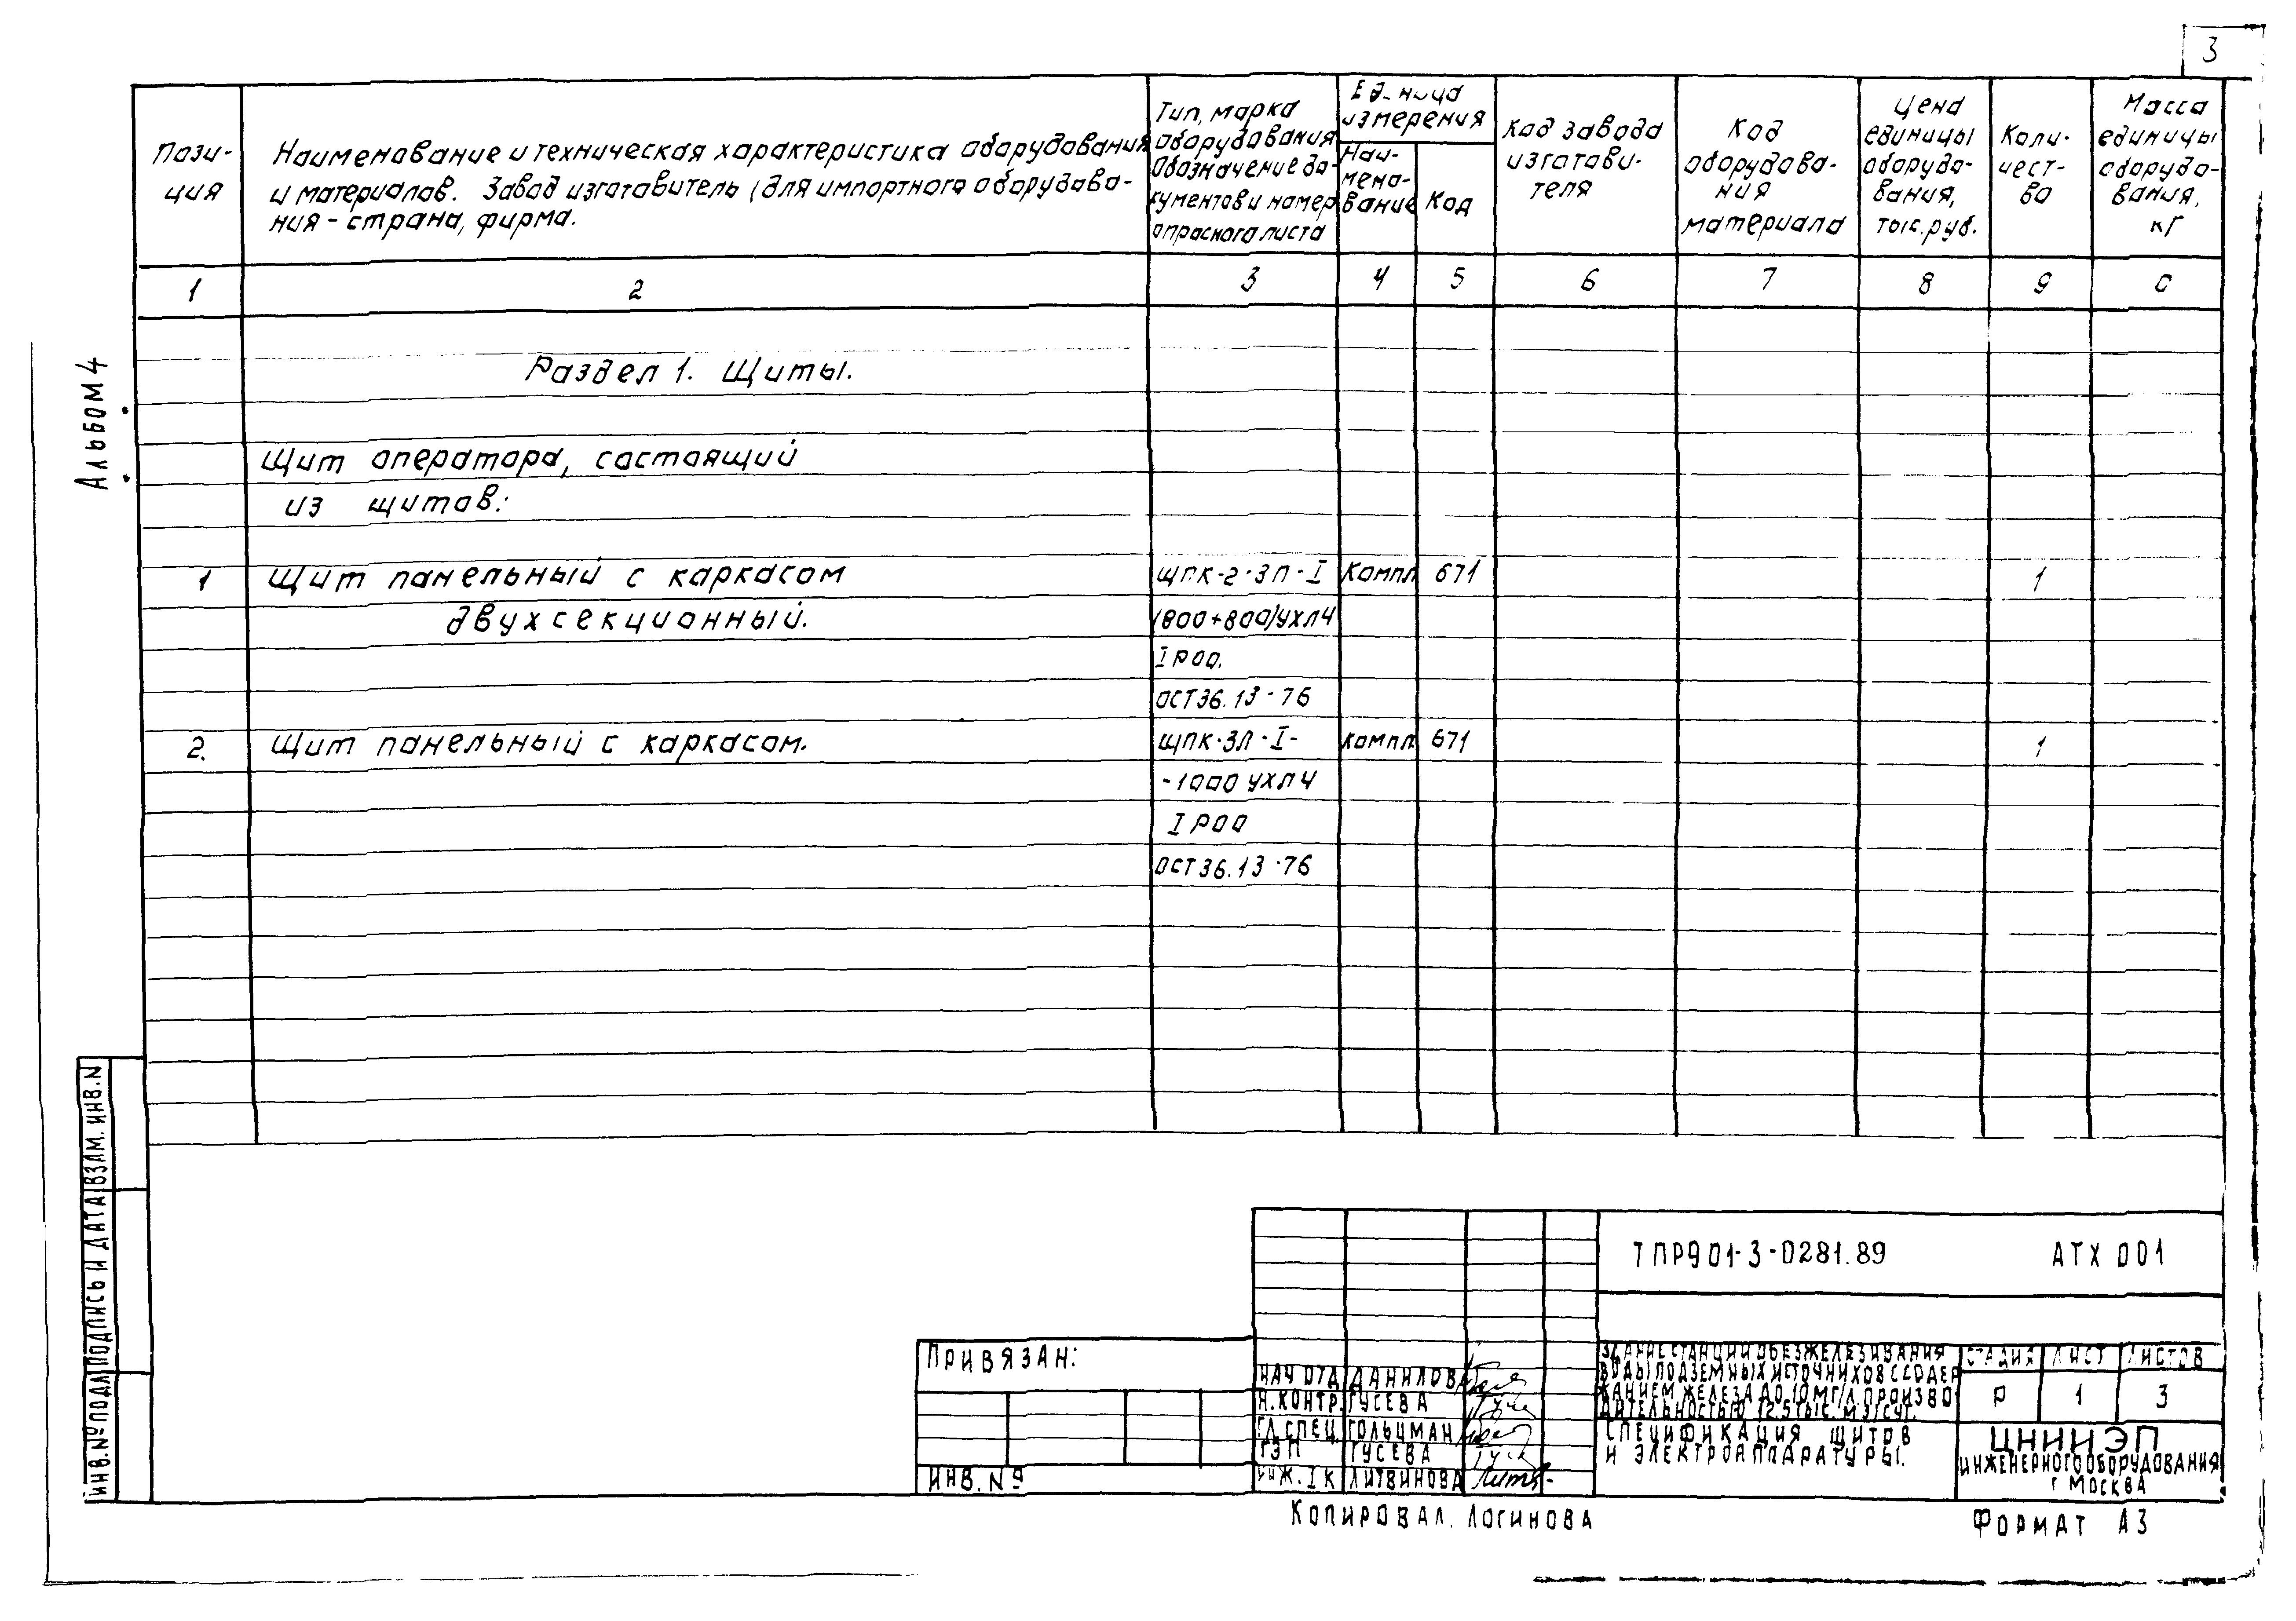 3
Пози-
ция
Наименование и техническая характеристика оборудования
и материалов. Завод изготовитель (для импортного оборудова-
ния - страна, фирма.
Тип, марка
оборудования
Обозначение до-
кументов и номер
опросного листа
измерения
Наи-
мено-
вание
Код
Код завода
изготави-
теля
Код
оборудова-
ния
материала
Цена
единицы
оборудо-
вания,
тыс. руб.
Коли-
чест-
во
Масса
единицы
оборудо-
вания,
кг
1 2 3 4 5 6 7 8 9 0
Альбом 4
Раздел 1. Щиты.
Щит оператора, состоящий
из щитов:
1 Щит панельный с каркасом ЩПК-2-ЗП-I Компл 671 1
двухсекционный. (800+800)УХЛ4
IP00.
ОСТ36.13-76
2. Щит панельный с каркасом. ЩПК-ЗП-I- компл 671 1
-1000 УХЛ4
IP00
ОСТ36.13-76
ВЗАМ. ИНВ. N
ПОДПИСЬ И ДАТА
ИНВ. № ПОДЛ
ТПР901-3-0281.89 АТХ 001
ПРИВЯЗАН:
ИНВ. №
НАЧ ОТД ДАНИЛОВ
Н. КОНТР. ГУСЕВА
ГЛ. СПЕЦ. ГОЛЬЦМАН
ГЭП ГУСЕВА
ИНЖ. I К ЛИТВИНОВА
ЗДАНИЕ СТАНЦИИ ОБЕЗЖЕЛЕЗИВАНИЯ
ВОДЫ ПОДЗЕМНЫХ ИСТОЧНИКОВ С СОДЕР
ЖАНИЕМ ЖЕЛЕЗА ДО 10 МГ/Л ПРОИЗВО
ДИТЕЛЬНОСТЬЮ 12.5 ТЫС. М3/СУТ.
СПЕЦИФИКАЦИЯ ЩИТОВ
И ЭЛЕКТРОАППАРАТУРЫ.
СТАДИЯ ЛИСТ ЛИСТОВ
Р 1 3
ЦНИИЭП
ИНЖЕНЕРНОГО ОБОРУДОВАНИЯ
г МОСКВА
КОПИРОВАЛ. ЛОГИНОВА
ФОРМАТ А3